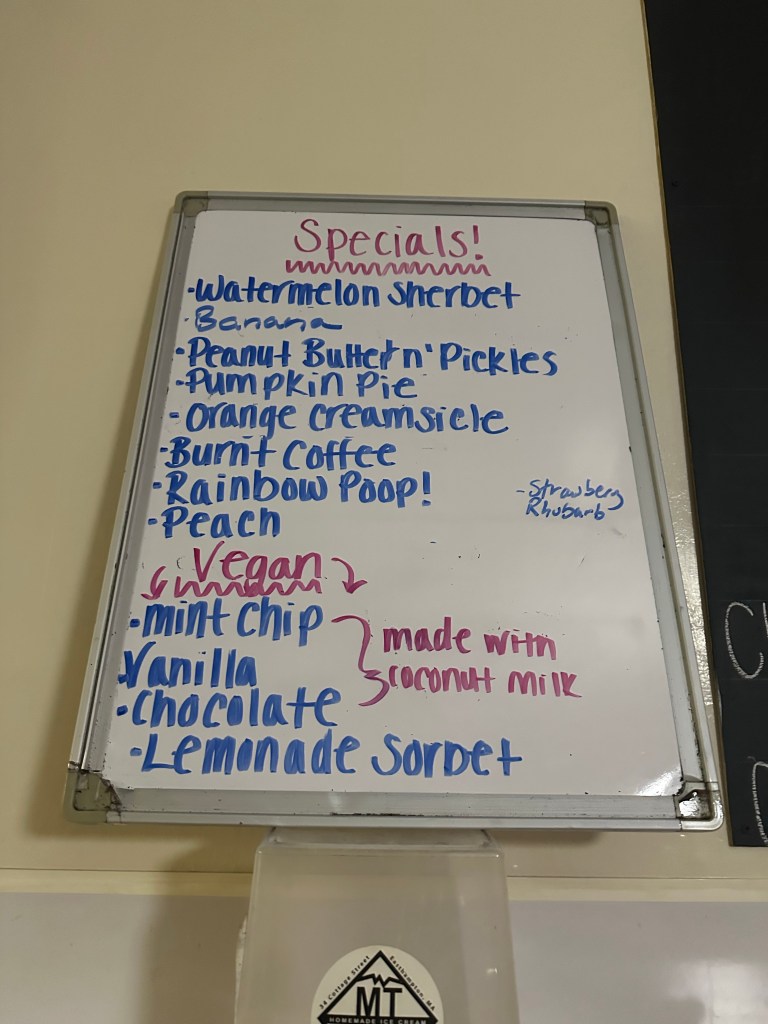 Specials!
·Watermelon sherbet
·Banana
·Peanut Butter n' Pickles
·Pumpkin Pie
·Orange creamsicle
·Burnt Coffee
·Rainbow Poop!
·Peach
-Strawberg
Rhubarb
Vegan
·mint chip
·Vanilla
·Chocolate
made with
coconut milk
·Lemonade Sorbet
34 Cottage Street Easthampton, MA
MT
HOMEMADE ICE CREAM